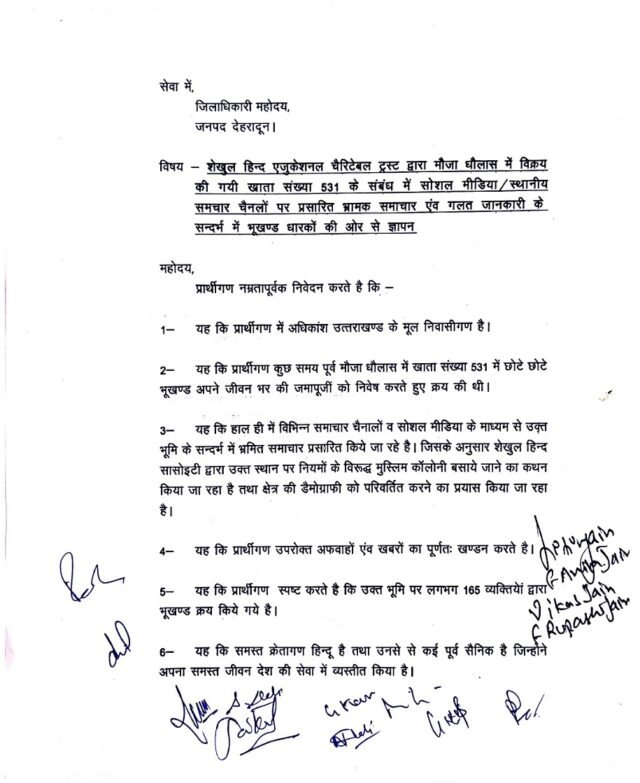 सेवा में,
जिलाधिकारी महोदय,
जनपद देहरादून।
विषय – शेखुल हिन्द एजुकेशनल चैरिटेबल ट्रस्ट द्वारा मौजा धौलास में विक्रय
की गयी खाता संख्या 531 के संबंध में सोशल मीडिया/स्थानीय
समचार चैनलों पर प्रसारित भ्रामक समाचार एंव गलत जानकारी के
सन्दर्भ में भूखण्ड धारकों की ओर से ज्ञापन
महोदय,
प्रार्थीगण नम्रतापूर्वक निवेदन करते है कि –
1– यह कि प्रार्थीगण में अधिकांश उत्तराखण्ड के मूल निवासीगण है।
2– यह कि प्रार्थीगण कुछ समय पूर्व मौजा धौलास में खाता संख्या 531 में छोटे छोटे
भूखण्ड अपने जीवन भर की जमापूजीं को निवेष करते हुए क्रय की थी।
3– यह कि हाल ही में विभिन्न समाचार चैनालों व सोशल मीडिया के माध्यम से उक्त
भूमि के सन्दर्भ में भ्रमित समाचार प्रसारित किये जा रहे है। जिसके अनुसार शेखुल हिन्द
सासोइटी द्वारा उक्त स्थान पर नियमों के विरूद्ध मुस्लिम कॉलोनी बसाये जाने का कथन
किया जा रहा है तथा क्षेत्र की डैमोग्राफी को परिवर्तित करने का प्रयास किया जा रहा
है।
4– यह कि प्रार्थीगण उपरोक्त अफवाहों एंव खबरों का पूर्णतः खण्डन करते है।
5– यह कि प्रार्थीगण स्पष्ट करते है कि उक्त भूमि पर लगभग 165 व्यक्तियों द्वारा
भूखण्ड क्रय किये गये है।
Vikas Jain
6– यह कि समस्त क्रेतागण हिन्दू है तथा उनसे से कई पूर्व सैनिक है जिन्होने
अपना समस्त जीवन देश की सेवा में व्यस्तीत किया है।